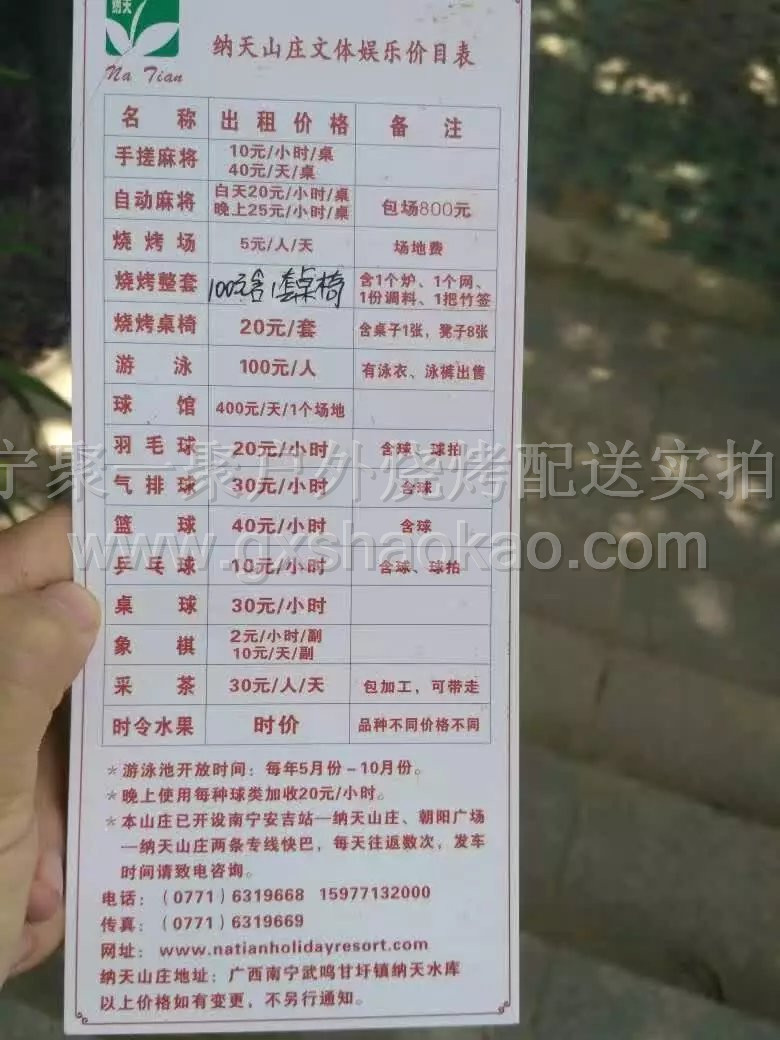 纳天
Na Tian
纳天山庄文体娱乐价目表
名 称 出租价格 备 注
手搓麻将 10元/小时/桌
40元/天/桌
自动麻将 白天20元/小时/桌
晚上25元/小时/桌 包场800元
烧烤场 5元/人/天 场地费
烧烤整套 100元含1套桌椅 含1个炉、1个网、
1份调料、1把竹签
烧烤桌椅 20元/套 含桌子1张，凳子8张
游 泳 100元/人 有泳衣、泳裤出售
球 馆 400元/天/1个场地
羽毛球 20元/小时 含球、球拍
宁聚一聚户外烧烤配送实拍
气排球 30元/小时 含球
篮 球 40元/小时 含球
www.gxshaokao.com
乒乓球 10元/小时 含球、球拍
桌 球 30元/小时
象 棋 2元/小时/副
10元/天/副
采 茶 30元/人/天 包加工，可带走
时令水果 时价 品种不同价格不同
*游泳池开放时间：每年5月份-10月份。
*晚上使用每种球类加收20元/小时。
*本山庄已开设南宁安吉站—纳天山庄、朝阳广场
—纳天山庄两条专线快巴，每天往返数次，发车
时间请致电咨询。
电话：（0771）6319668 15977132000
传真：（0771）6319669
网址：www.natianholidayresort.com
纳天山庄地址：广西南宁武鸣甘圩镇纳天水库
以上价格如有变更，不另行通知。